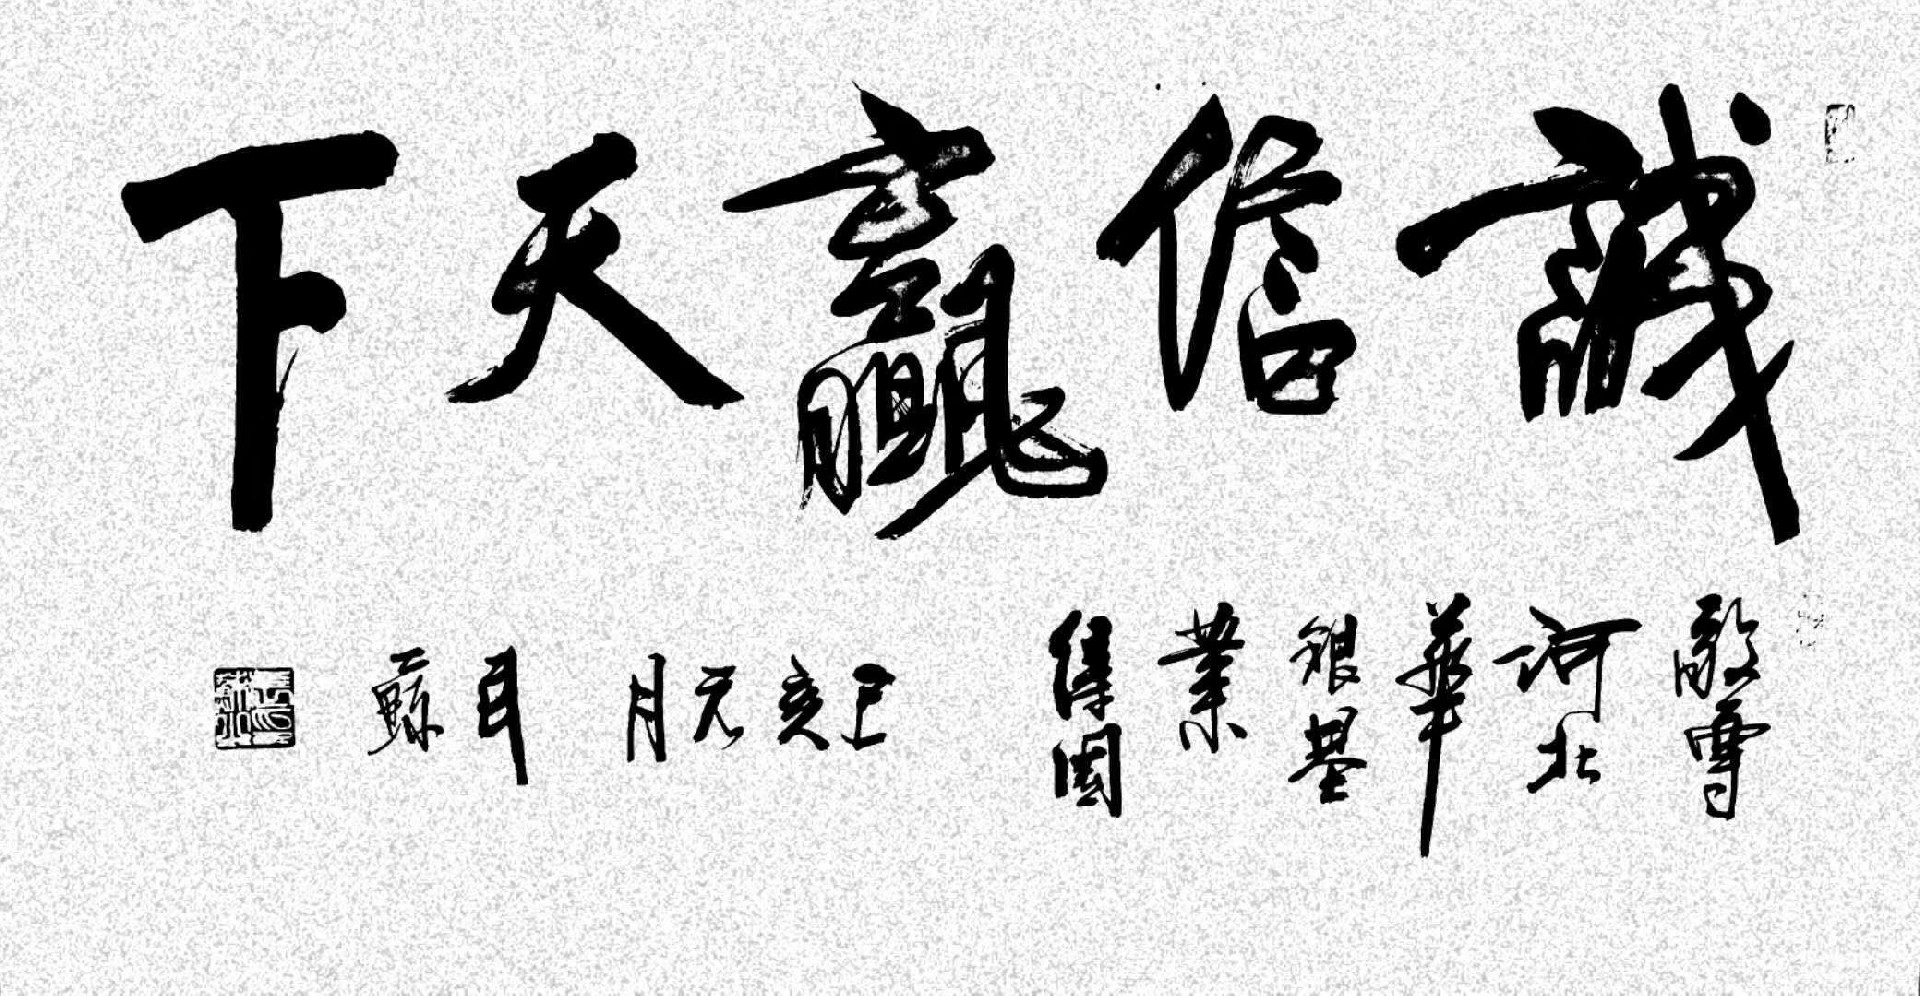 誠信贏天下
敬書
河北
華
銀基
業
集團
己亥元月